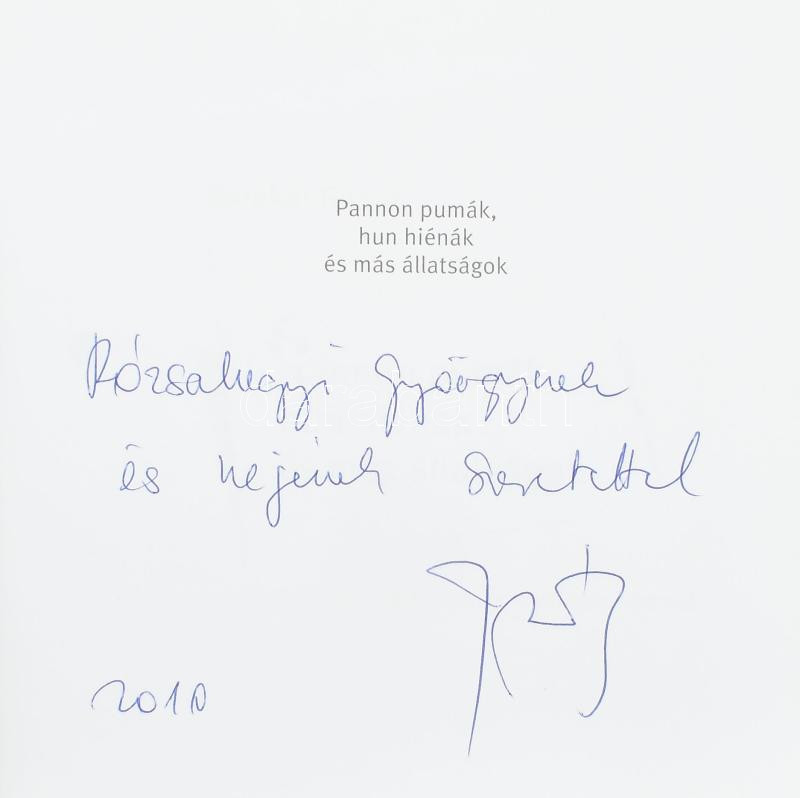 Pannon pumák,
hun hiénák
és más állatságok
Rózsahegyi Györgynek
és nejének szeretettel
2010